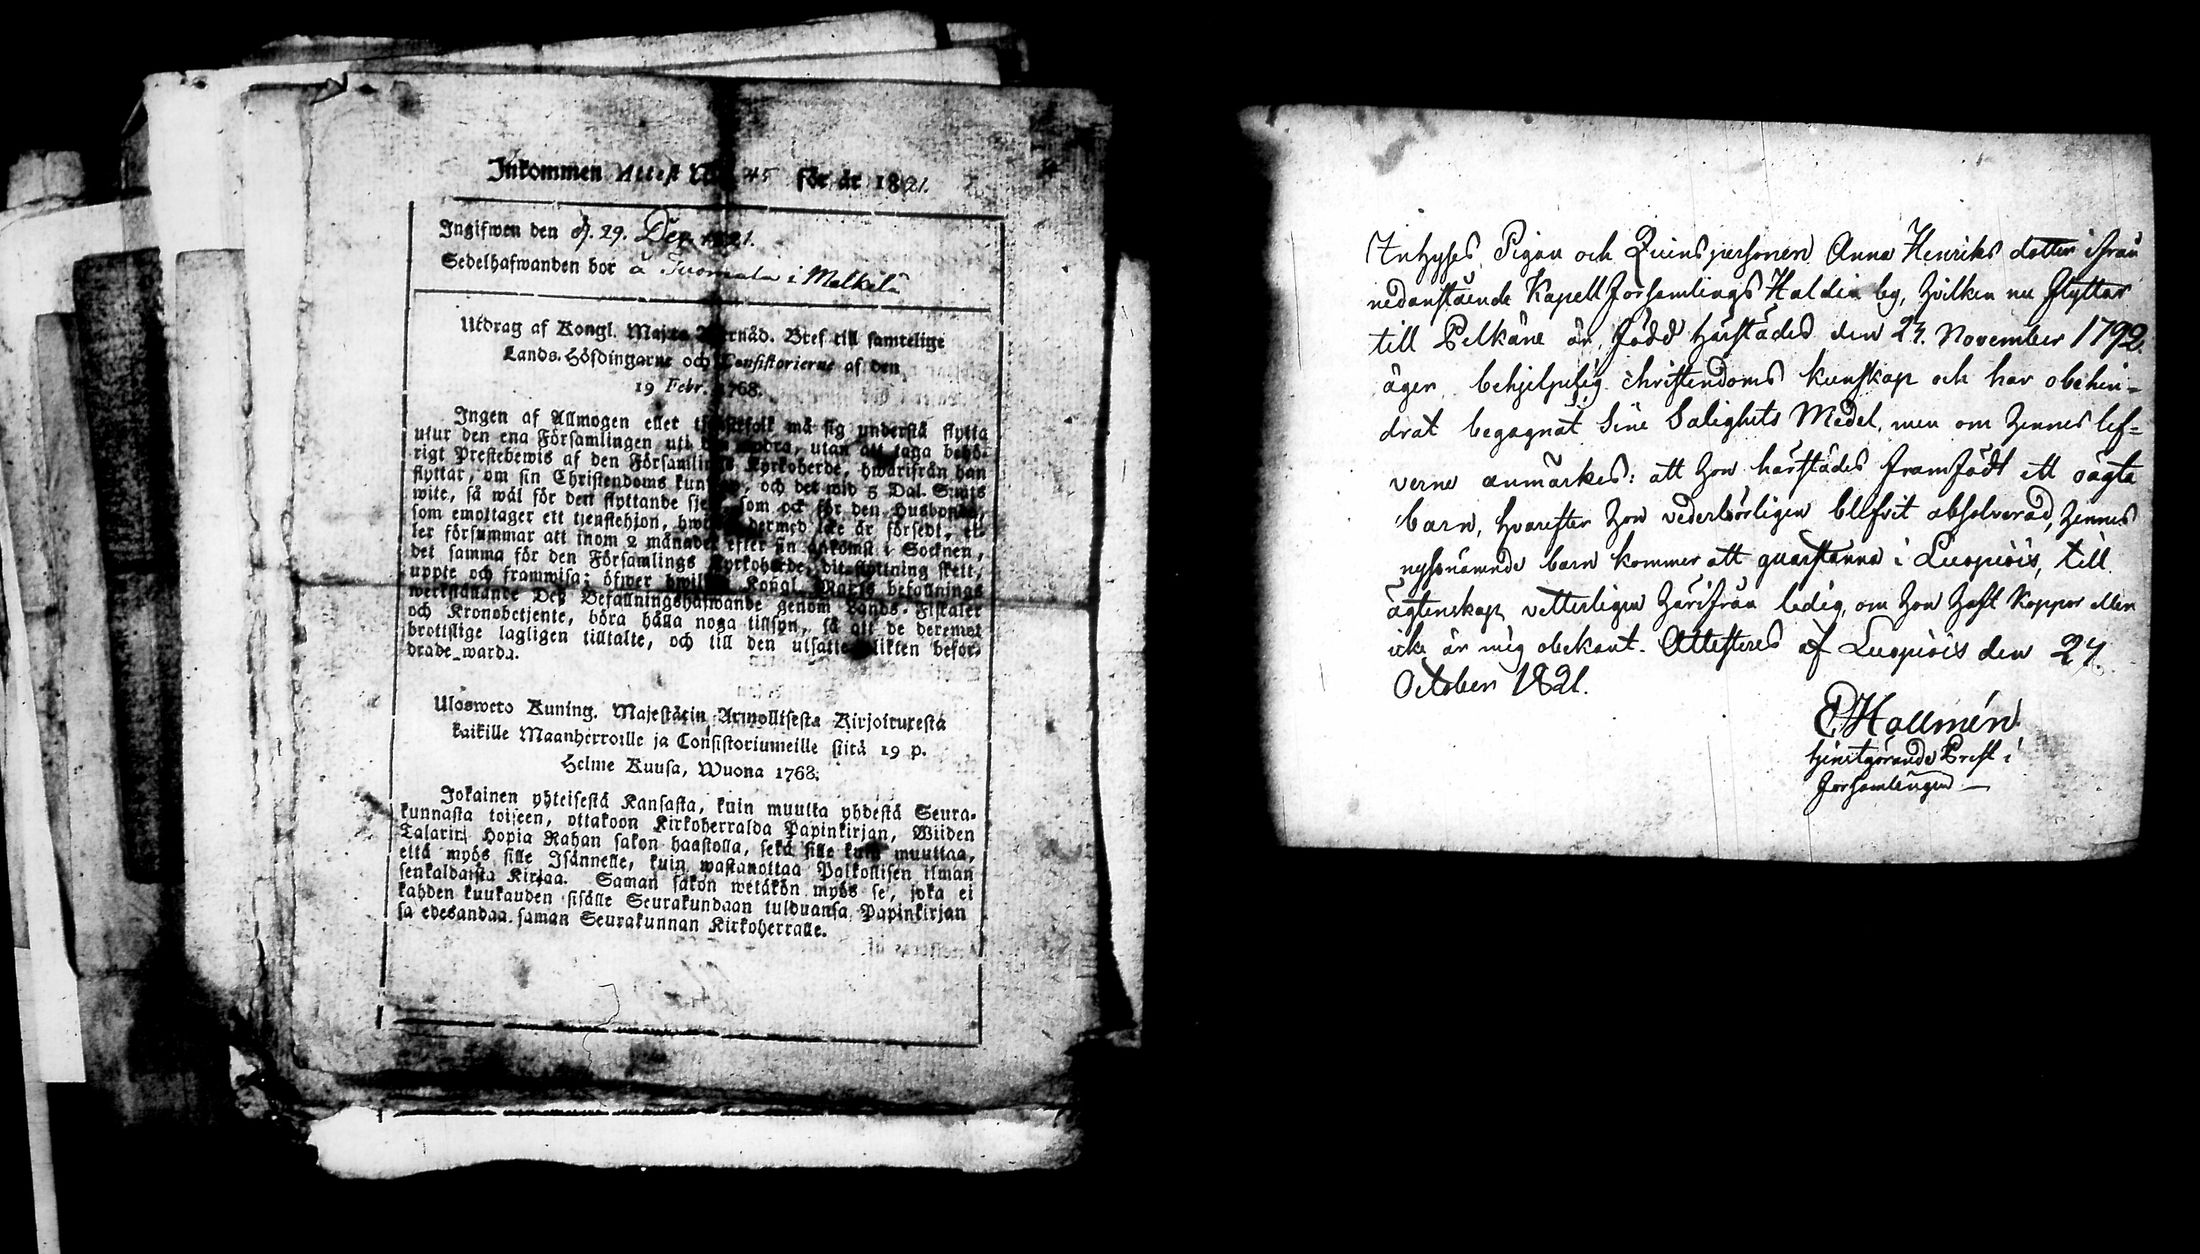 Inkommen Attest No 45 för år 1821.
Ingifwen den d. 29. Dec. 1821.
Sedelhafwanden bor å Tuomala i Mälkilä
Utdrag af Kongl. Maj:ts nåd. Bref till samtelige
Lands-Höfdingarne och Consistorierne af den
19 Febr. 1768.
Ingen af Allmogen eller tjenstefolk må sig understå flytta
utur den ena Församlingen uti den andra, utan att taga behö-
rigt Prestebewis af den Församlings Kyrkoherde, hwarifrån han
flyttar, om sin Christendoms kunskap, och det wid 5 Dal. S:mts
wite, så wäl för den flyttande sjelf, som ock för den Husbonde,
som emottager ett tjenstehjon, hwilket dermed icke är försedt, el-
ler försummar att inom 2 månader efter sin ankomst i Socknen,
det samma för den Församlings Kyrkoherde, dit flyttning skett,
uppte och framwisa; öfwer hwilken Kongl. Maj:ts befallnings
werkställande Deß Befallningshafwande genom Lands-Fiskaler
och Kronobetjente, böra hålla noga tillsyn, så att de deremot
brottslige lagligen tilltalte, och till den utsatte plikten befor-
drade warda.
Ulosweto Kuning. Majestätin Armollisesta Kirjoituxesta
kaikille Maanherroille ja Consistoriumeille siitä 19 p.
Helme Kuusa, Wuona 1768.
Jokainen yhteisestä Kansasta, kuin muutta yhdestä Seura-
kunnasta toiseen, ottakoon Kirkoherralda Papinkirjan, Wiiden
Talarin Hopia Rahan sakon haastolla, sekä sille kuin muuttaa,
että myös sille Isännelle, kuin wastanottaa Palkollisen ilman
senkaldaista Kirjaa. Saman sakon wetäkön myös se, joka ei
kahden kuukauden sisälle Seurakundaan tulduansa, Papinkirjan
sa edesandaa saman Seurakunnan Kirkoherralle.
Intyges, Pigan och Quinspersonen Anna Henriks dotter ifrån
nedanstående Kapell Församlings Haldia by, hvilken nu flyttar
till Pelkäne är, född härstädes den 24. November 1792.
äger behjelpelig christendoms kunskap och har obehin-
drat begagnat sine Salighets Medel, men om hennes lef-
verne anmärkes: att hon härstädes framfödt ett oägta
barn, hvarefter hon vederbörligen blifvit absolverad, hennes
nyssnämnde barn kommer att quarstanna i Luopiois, till
ägtenskap vetterligen härifrån ledig, om hon haft Koppor eller
icke är mig obekant. Attesteres af Luopiois den 27.
October 1821.
E Hallmén
tjenstgörande Prest i
Församlingen